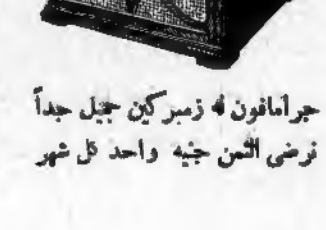 جرامافون له زمبركين جميل جداً
نرضى الثمن جنيه واحد كل شهر